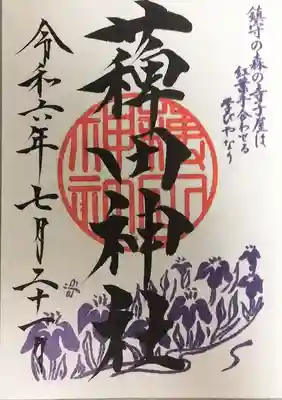 鎮守の森の寺子屋は
紅葉手合わせる
学びやなり
薭田神社
薭田
神社
令和六年七月二十一日